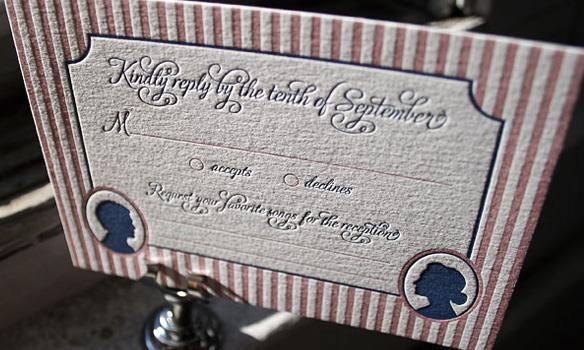 Kindly reply by the tenth of September
M
accepts declines
Request your favorite songs for the reception